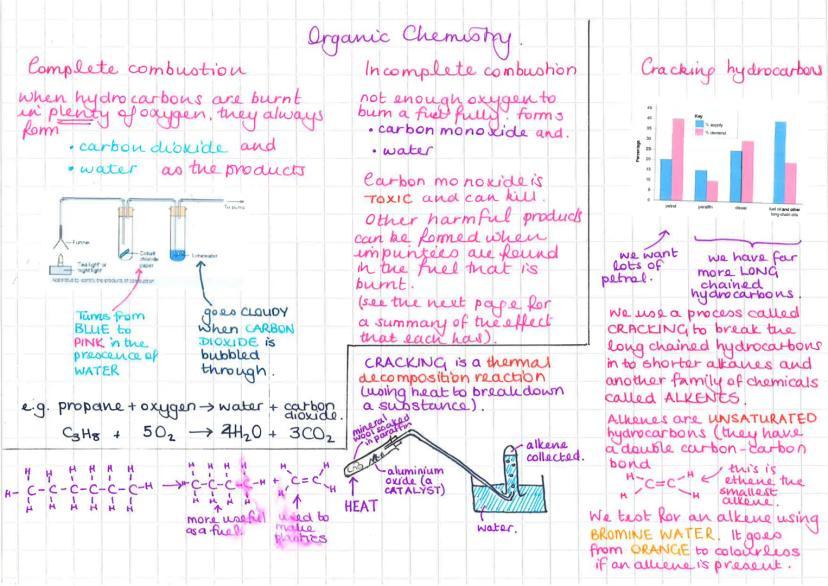 Organic Chemistry.
Complete combustion
when hydrocarbons are burnt
in plenty of oxygen, they always
form
• carbon dioxide and
• water as the products
To pump
Funnel
Tea light or
night light
Cobalt
chloride
paper
Limewater
Apparatus to identify the products of combustion
Turns from
BLUE to
PINK in the
prescence of
WATER
goes CLOUDY
when CARBON
DIOXIDE is
bubbled
through.
e.g. propane + oxygen → water + carbon
dioxide.
C3H8 + 5O2 → 4H2O + 3CO2
Incomplete combustion
not enough oxygen to
burn a fuel fully. forms
• carbon monoxide and.
• water
Carbon monoxide is
TOXIC and can kill.
Other harmful products
can be formed when
impurities are found
in the fuel that is
burnt.
(see the next page for
a summary of the effect
that each has).
Cracking hydrocarbons
Key
% supply
% demand
Percentage
45
40
35
30
25
20
15
10
5
0
petrol
paraffin
diesel
fuel oil and other
long-chain oils
we want
lots of
petrol.
we have far
more LONG
chained
hydrocarbons.
We use a process called
CRACKING to break the
long chained hydrocarbons
in to shorter alkanes and
another family of chemicals
called ALKENES.
Alkenes are UNSATURATED
hydrocarbons (they have
a double carbon-carbon
bond
H H
C=C
H H
this is
ethene the
smallest
alkene.
We test for an alkene using
BROMINE WATER. It goes
from ORANGE to colourless
if an alkene is present.
CRACKING is a thermal
decomposition reaction
(using heat to breakdown
a substance).
mineral
wool soaked
in paraffin
aluminium
oxide (a
CATALYST)
HEAT
alkene
collected.
water.
H H H H H H
H-C-C-C-C-C-C-H
H H H H H H
→
H H H H
H-C-C-C-C-H
H H H H
+
H H
C=C
H H
more useful
as a fuel.
used to
make
plastics